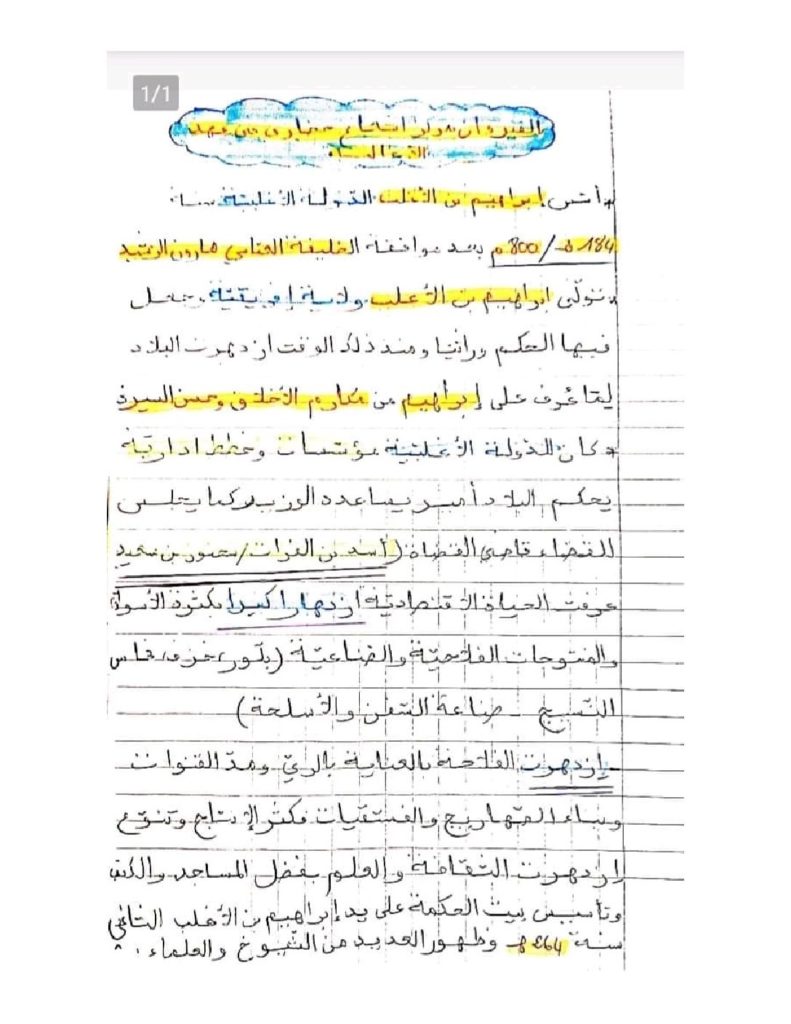 1/1
القيروان مركز إشعاع حضاري في عهد
* أسّس إبراهيم بن الأغلب الدّولة الأغلبيّة سنة
184 هـ / 800 م بعد موافقة الخليفة العباسي هارون الرشيد
. تولّى ابراهيم بن الأغلب ولاية إفريقيّة وجعل
فيها الحكم وراثيا ومنذ ذلك الوقت ازدهرت البلاد
لِمَا عُرف على إبراهيم من مكارم الأخلاق وحسن السيرة
* كان للدّولة الأغلبيّة مؤسّسات وخطط اداريّة
يحكم البلاد أمير يساعده الوزير كما يجلس
للقضاء قاضي القضاة (أسد بن الفرات / سحنون بن سعيد
عرفت الحياة الاقتصاديّة ازدهارا كبيرا بكثرة الأسواق
والمنتوجات الفلاحيّة والصّناعيّة (بلّور، خزف، نحاس
النّسيج - صناعة السّفن والأسلحة)
- إزدهرت الفلاحة بالعناية بالريّ ومدّ القنوات
وبناء الصّهاريج والفسقيات فكثر الإنتاج وتنوّع
ازدهرت الثّقافة والعلم بفضل المساجد والكتب
وتأسيس بيت الحكمة على يد إبراهيم بن الأغلب الثاني
سنة 264 هـ وظهور العديد من الشّيوخ والعلماء.